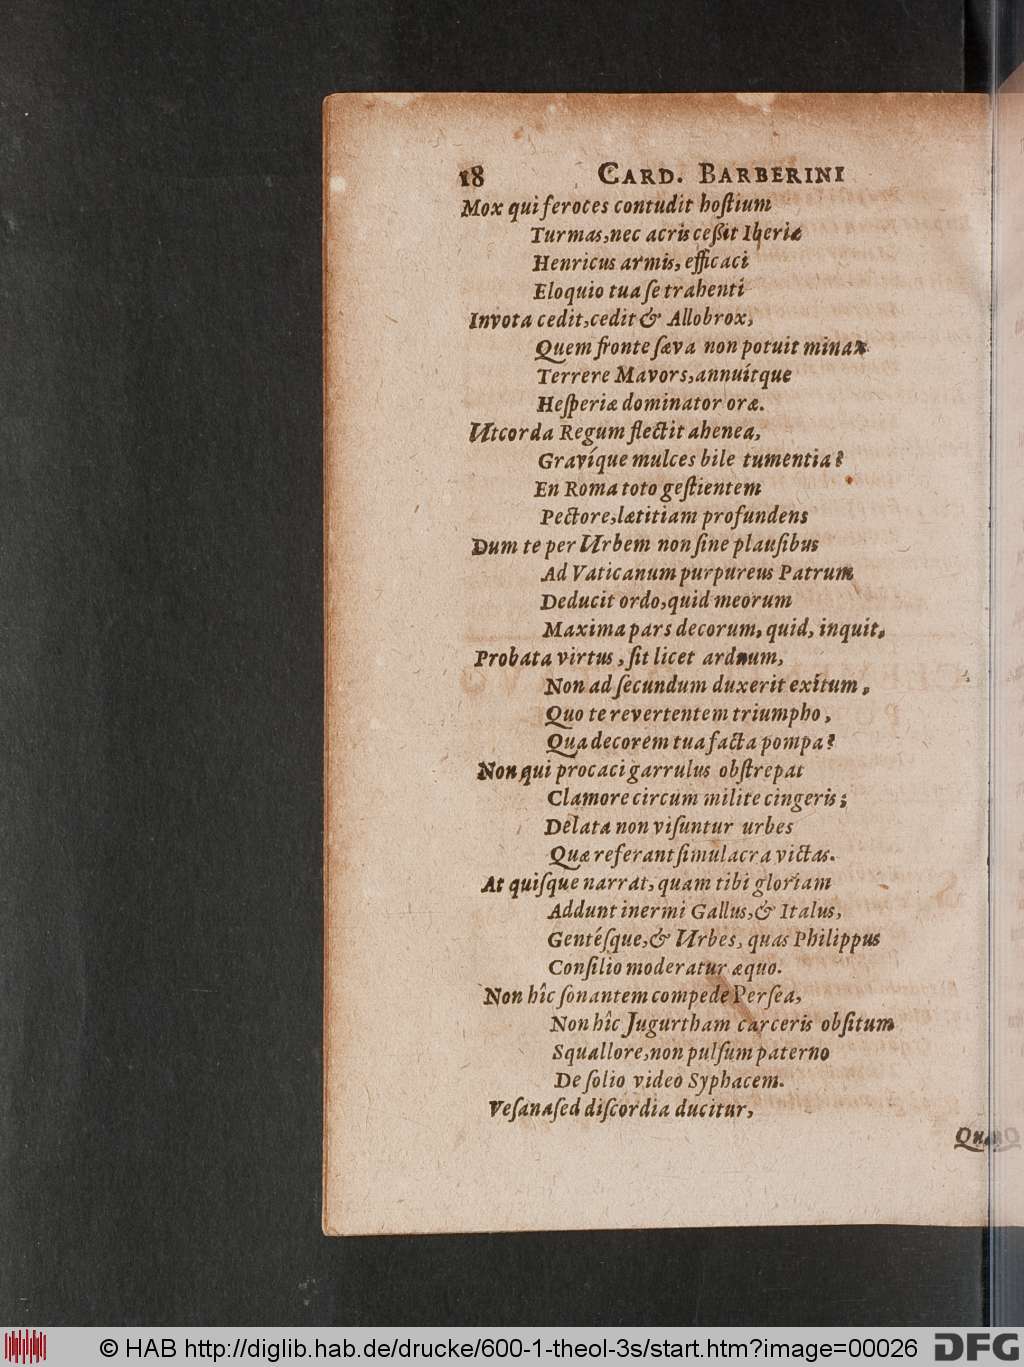 18 CARD. BARBERINI
Mox qui feroces contudit hoſtium
Turmas, nec acris ceßit Iberiæ
Henricus armis, efficaci
Eloquio tua ſe trahenti
In vota cedit, cedit & Allobrox,
Quem fronte ſæva non potuit minax
Terrere Mavors, annuítque
Heſperiæ dominator oræ.
Ut corda Regum flectit ahenea,
Gravíque mulces bile tumentia?
En Roma toto geſtientem
Pectore, lætitiam profundens
Dum te per Urbem non ſine plauſibus
Ad Vaticanum purpureus Patrum
Deducit ordo, quid meorum
Maxima pars decorum, quid, inquit,
Probata virtus, ſit licet arduum,
Non ad ſecundum duxerit exitum,
Quo te revertentem triumpho,
Qua decorem tua facta pompa?
Non qui procaci garrulus obſtrepat
Clamore circum milite cingeris;
Delata non viſuntur urbes
Quæ referant ſimulacra victas.
At quiſque narrat, quam tibi gloriam
Addunt inermi Gallus, & Italus,
Gentéſque, & Urbes, quas Philippus
Conſilio moderatur æquo.
Non hîc ſonantem compede Perſea,
Non hîc Jugurtham carceris obſitum
Squallore, non pulſum paterno
De ſolio video Syphacem.
Veſana ſed diſcordia ducitur,
© HAB http://diglib.hab.de/drucke/600-1-theol-3s/start.htm?image=00026
DFG